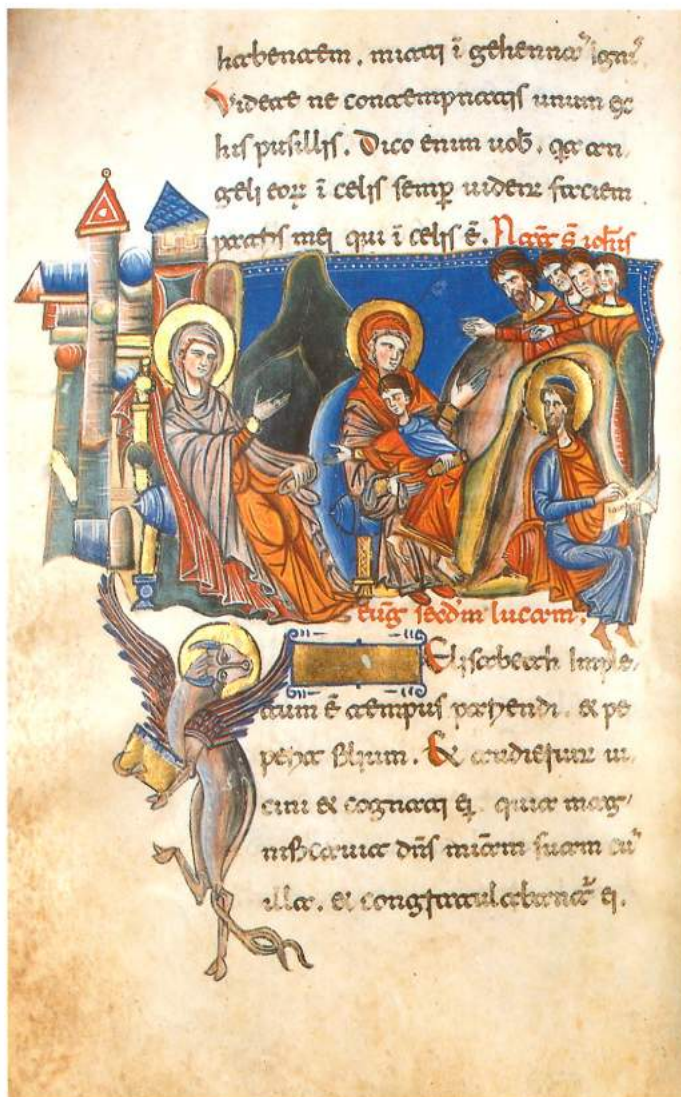 habentem. mitti ī gehennā ignis.
Videte ne contempnatis unum ex
his pusillis. Dico enim uob. qa an-
geli eoꝝ ī celis semp uident faciem
patris mei qui ī celis ē. Nat̄ s̄ ioh̄is
eug̅ secd̄m lucam.
Elisabeth imple-
tum ē tempus pariendi. et pe-
perit filium. Et audierunt ui-
cini et cognati ei. quia mag-
nificauit dn̄s miām suam cū
illa. et congratulabant̄ ei.